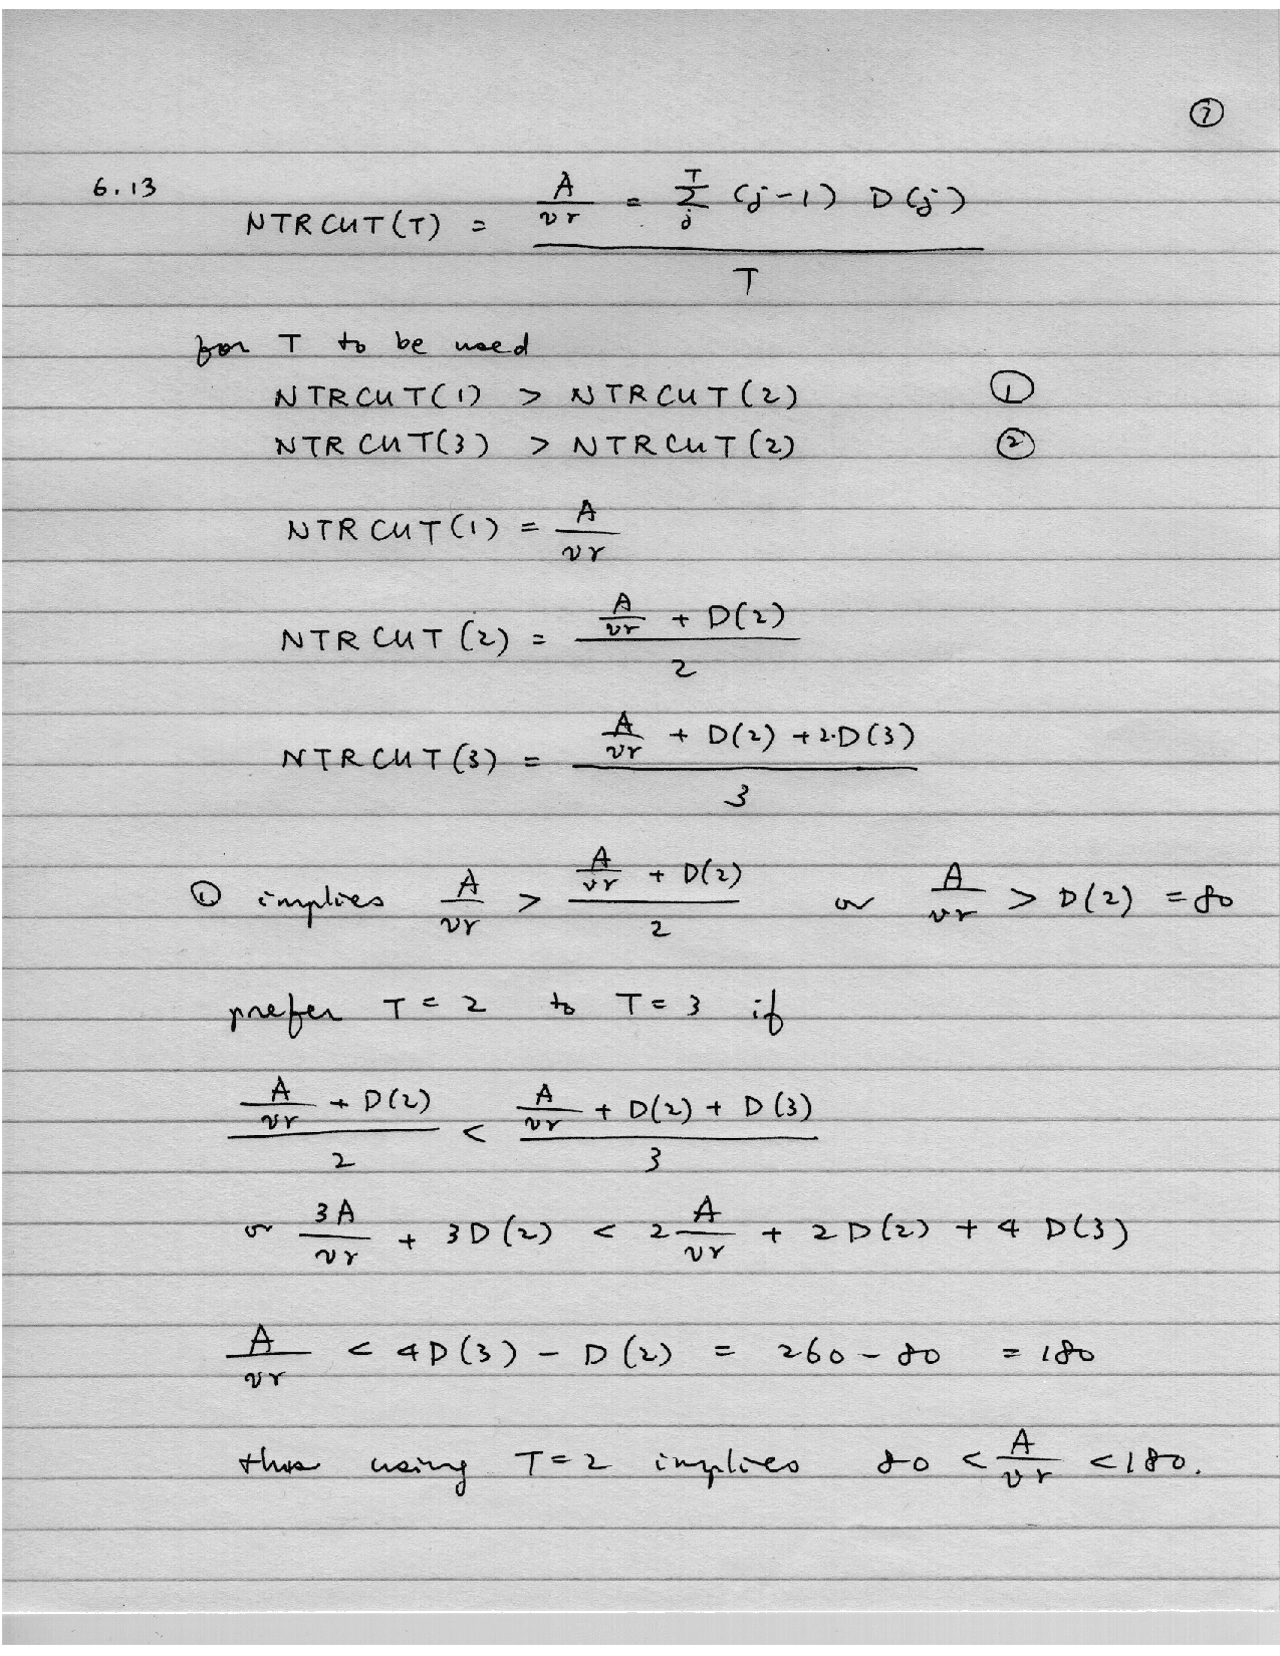 ⑦
6.13 NTRCUT(T) = (A/vr = Σ_j^T (j-1) D(j)) / T
for T to be used
NTRCUT(1) > NTRCUT(2) ①
NTRCUT(3) > NTRCUT(2) ②
NTRCUT(1) = A/vr
NTRCUT(2) = (A/vr + D(2)) / 2
NTRCUT(3) = (A/vr + D(2) + 2·D(3)) / 3
① implies A/vr > (A/vr + D(2)) / 2 or A/vr > D(2) = 80
prefer T = 2 to T = 3 if
(A/vr + D(2)) / 2 < (A/vr + D(2) + D(3)) / 3
or 3A/vr + 3D(2) < 2 A/vr + 2D(2) + 4 D(3)
A/vr < 4D(3) - D(2) = 260 - 80 = 180
thus using T = 2 implies 80 < A/vr < 180.